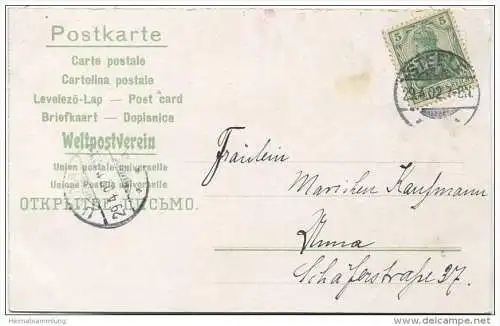 Postkarte
Carte postale
Cartolina postale
Levelező-Lap — Post card
Briefkaart — Dopisnica
Weltpostverein
Union postale universelle
Unione Postale universelle
ОТКРЫТОЕ ПИСЬМО.
5 5
29.4.02 7-8N.
29.4.02
Fräulein
Marichen Kaufmann
Unna
Schäferstraße 37.
Heimatsammlung